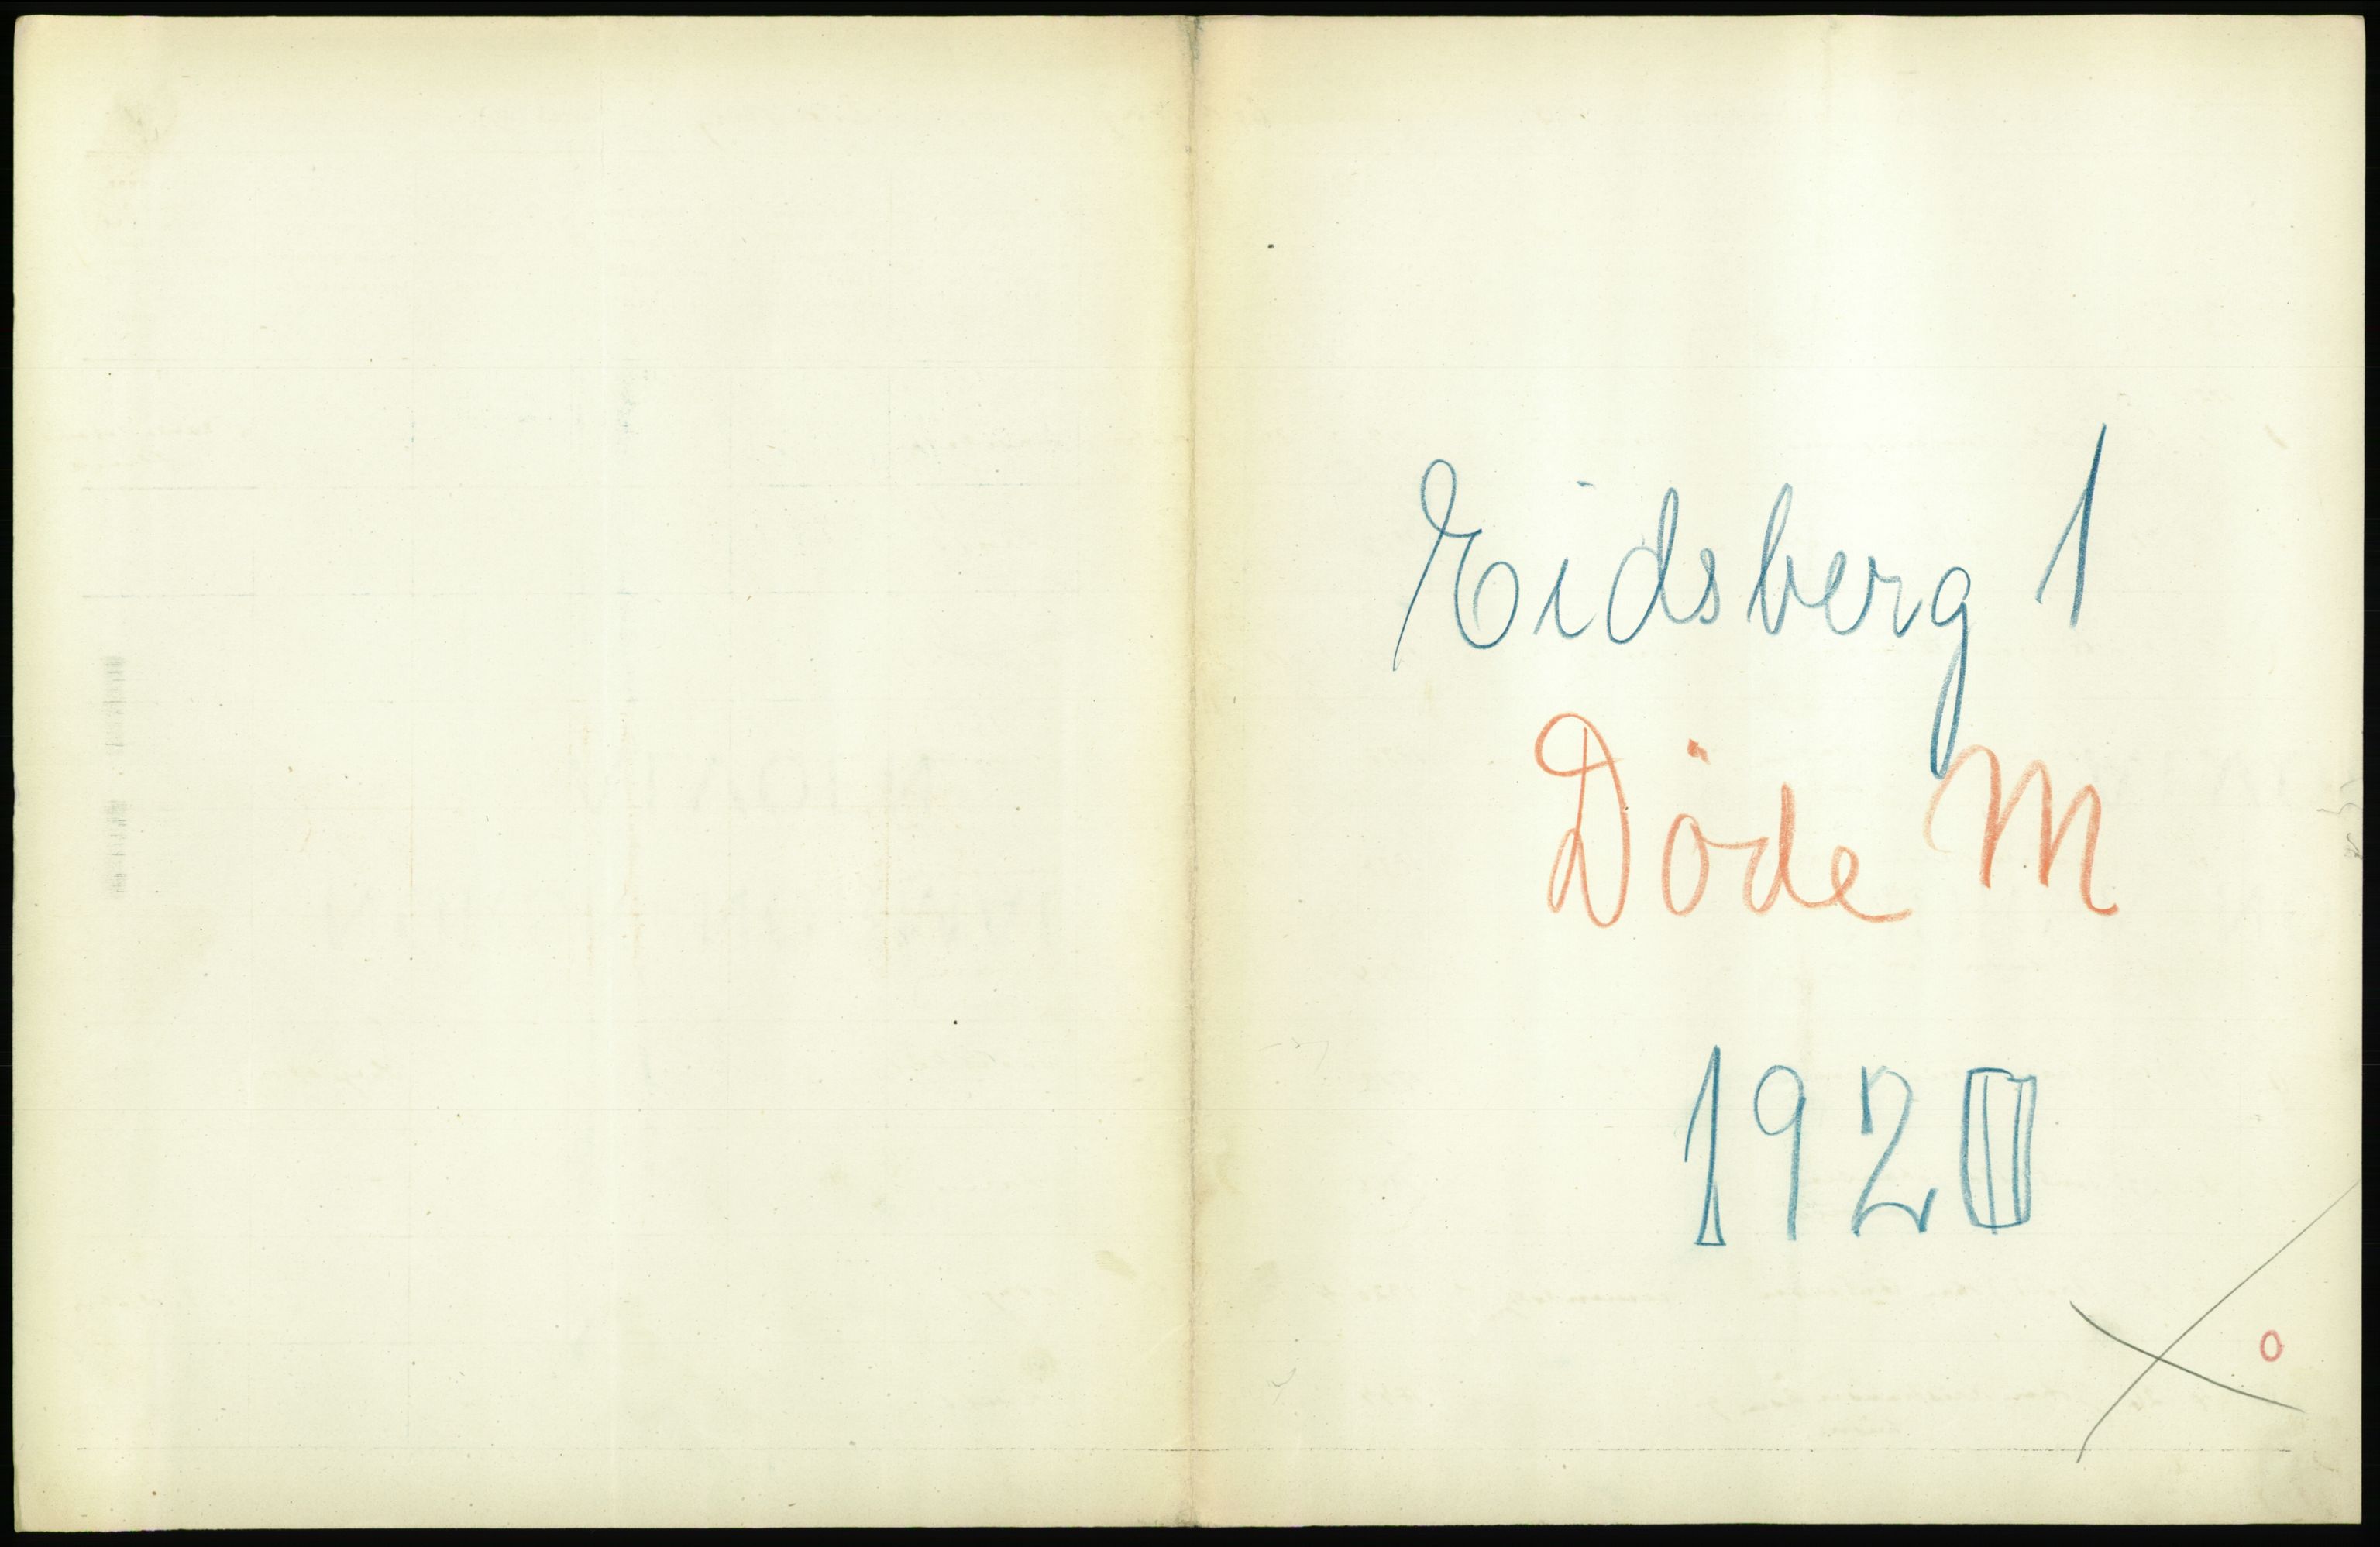 Eidsberg 1
Döde M
1920
o